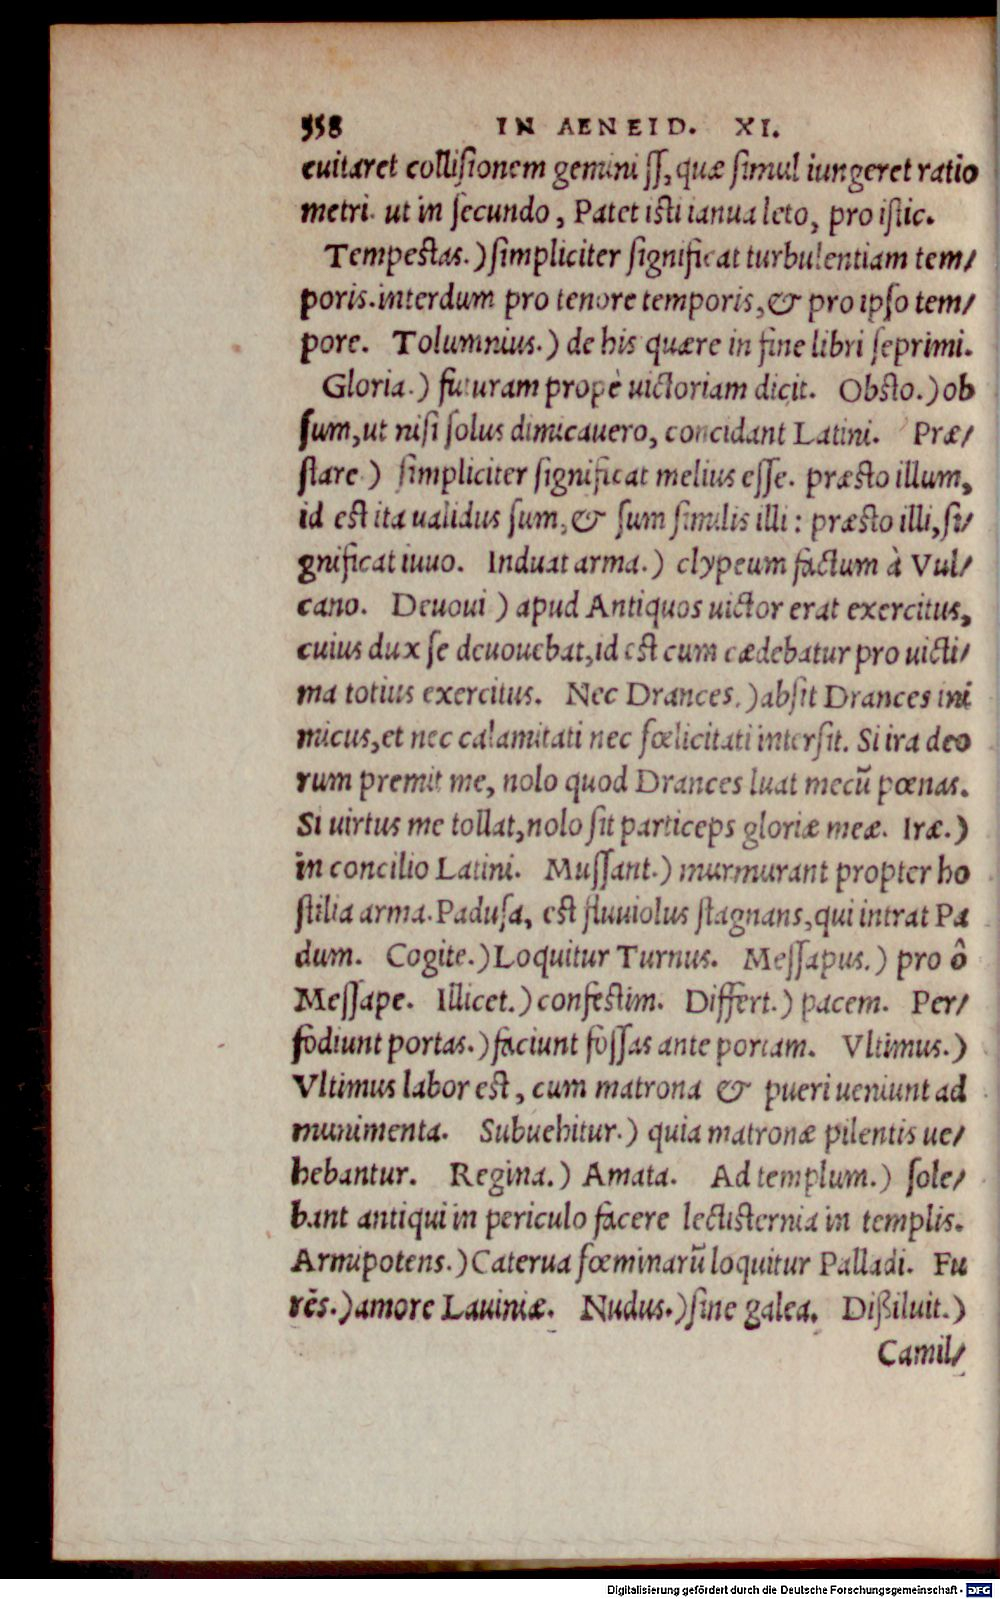 558 IN AENEID. XI.
euitaret collisionem gemini ss, quæ simul iungeret ratio
metri. ut in secundo, Patet isti ianua leto, pro istic.
Tempestas.) simpliciter significat turbulentiam tem/
poris. interdum pro tenore temporis, & pro ipso tem/
pore. Tolumnius.) de his quære in fine libri seprimi.
Gloria.) futuram propè uictoriam dicit. Obsto.) ob
sum, ut nisi solus dimicauero, concidant Latini. Præ/
stare.) simpliciter significat melius esse. præsto illum,
id est ita ualidus sum, & sum similis illi: præsto illi, si/
gnificat iuuo. Induat arma.) clypeum factum à Vul/
cano. Deuoui) apud Antiquos uictor erat exercitus,
cuius dux se deuouebat, id est cum cædebatur pro uicti/
ma totius exercitus. Nec Drances.) absit Drances ini
micus, et nec calamitati nec fœlicitati intersit. Si ira deo
rum premit me, nolo quod Drances luat mecũ pœnas.
Si uirtus me tollat, nolo sit particeps gloriæ meæ. Iræ.)
in concilio Latini. Mussant.) murmurant propter ho
stilia arma. Padusa, est fluuiolus stagnans, qui intrat Pa
dum. Cogite.) Loquitur Turnus. Messapus.) pro ô
Messape. Illicet.) confestim. Differt.) pacem. Per/
fodiunt portas.) faciunt fossas ante portam. Vltimus.)
Vltimus labor est, cum matrona & pueri ueniunt ad
munimenta. Subuehitur.) quia matronæ pilentis ue/
hebantur. Regina.) Amata. Ad templum.) sole/
bant antiqui in periculo facere lectisternia in templis.
Armipotens.) Caterua fœminarũ loquitur Palladi. Fu
rẽs.) amore Lauiniæ. Nudus.) sine galea. Dißiluit.)
Camil/
Digitalisierung gefördert durch die Deutsche Forschungsgemeinschaft - DFG